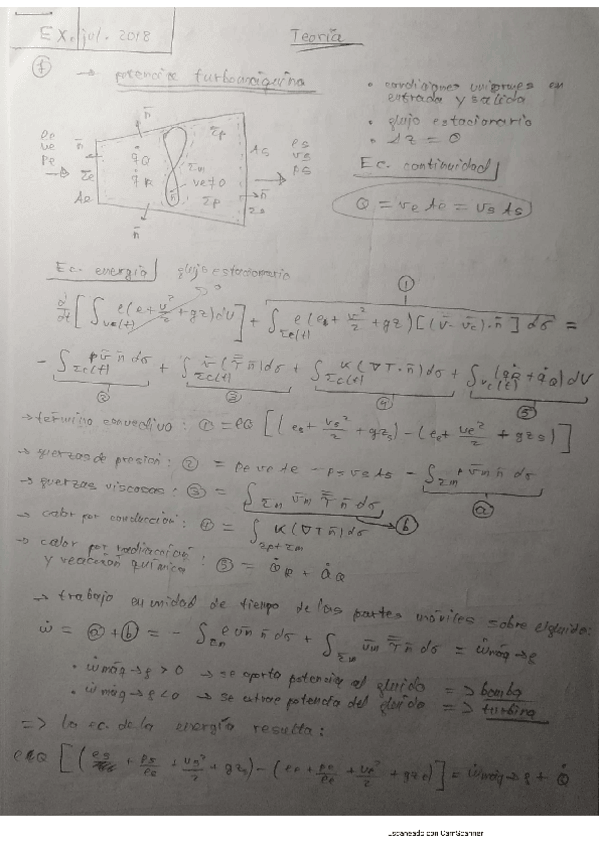 EX. jul. 2018
Teoría
① → potencia turbomáquina
• condiciones uniformes en entrada y salida
• flujo estacionario
• Δz = 0
Ec. continuidad
Q = ve Ae = vs As
ρe ve pe n̄ Σe Ae
q̇Q q̇R Σm vc≠0 Σp Σp n̄ n̄ n̄
As n̄ Σs ρs vs ps
Ec. energía flujo estacionario
①
d/dt [∫Vc(t) ρ(e + v²/2 + gz) dV] → 0 + ∫Σc(t) ρ(es + v²/2 + gz) [(v̄ - v̄c)·n̄] dσ =
- ∫Σc(t) p v̄ n̄ dσ + ∫Σc(t) v̄ (τ̿ n̄) dσ + ∫Σc(t) K (∇T·n̄) dσ + ∫Vc(t) (q̇R + q̇Q) dV
② ③ ④ ⑤
→ término convectivo: ① = ρQ [(es + vs²/2 + gzs) - (ee + ve²/2 + gzs)]
→ fuerzas de presión: ② = pe ve Ae - ps vs As - ∫Σm p v̄m n̄ dσ
ⓐ
→ fuerzas viscosas: ③ = ∫Σm v̄m τ̿ n̄ dσ → ⓑ
→ calor por conducción: ④ = ∫Σp+Σm K (∇T n̄) dσ
→ calor por radiación y reacción química: ⑤ = Q̇R + Q̇Q
→ trabajo en unidad de tiempo de las partes móviles sobre el fluido:
ẇ = ⓐ + ⓑ = - ∫Σm p v̄m n̄ dσ + ∫Σm v̄m τ̿ n̄ dσ = ẇmáq→f
• ẇmáq→f > 0 → se aporta potencia al fluido => bomba
• ẇmáq→f < 0 → se extrae potencia del fluido => turbina
=> la ec. de la energía resulta:
ρQ [(es + ps/ρe + vs²/2 + gzs) - (ee + pe/ρe + ve²/2 + gze)] = ẇmáq→f + Q̇
Escaneado con CamScanner